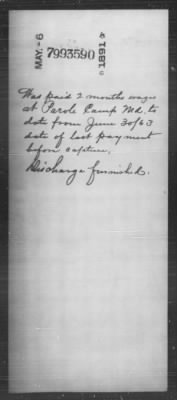 MAY - 6
7993590
1891
Was paid 2 months wages
at Parole Camp Md, to
date from June 30/63
date of last payment
before capture.
Discharge furnished.